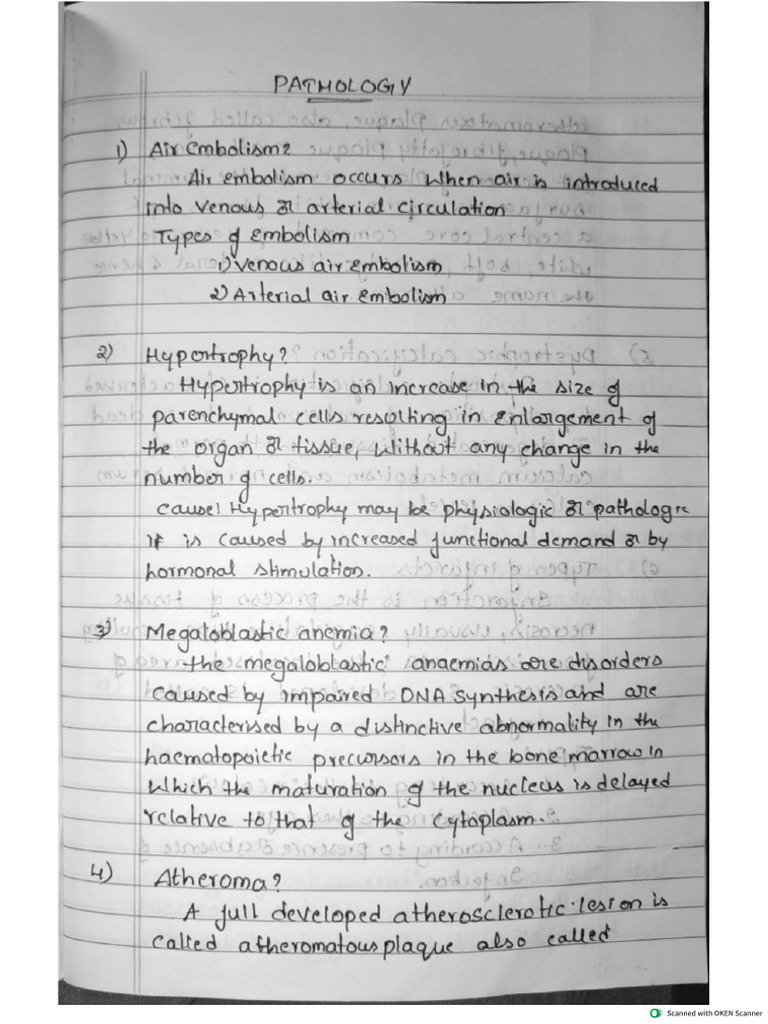 PATHOLOGY
1) Air Embolism?
Air embolism occurs when air is introduced
into venous or arterial circulation
Types of Embolism
1) Venous air Embolism
2) Arterial air Embolism
2) Hypertrophy?
Hypertrophy is an increase in the size of
parenchymal cells resulting in Enlargement of
the organ or tissue, without any change in the
number of cells.
cause: Hypertrophy may be physiologic or pathologic
it is caused by increased functional demand or by
hormonal stimulation.
3) Megaloblastic anemia?
the megaloblastic anaemias are disorders
caused by impaired DNA synthesis and are
characterised by a distinctive abnormality in the
haematopoietic precursors in the bone marrow in
which the maturation of the nucleus is delayed
relative to that of the cytoplasm.
4) Atheroma?
A full developed atherosclerotic lesion is
called atheromatous plaque also called
Scanned with OKEN Scanner